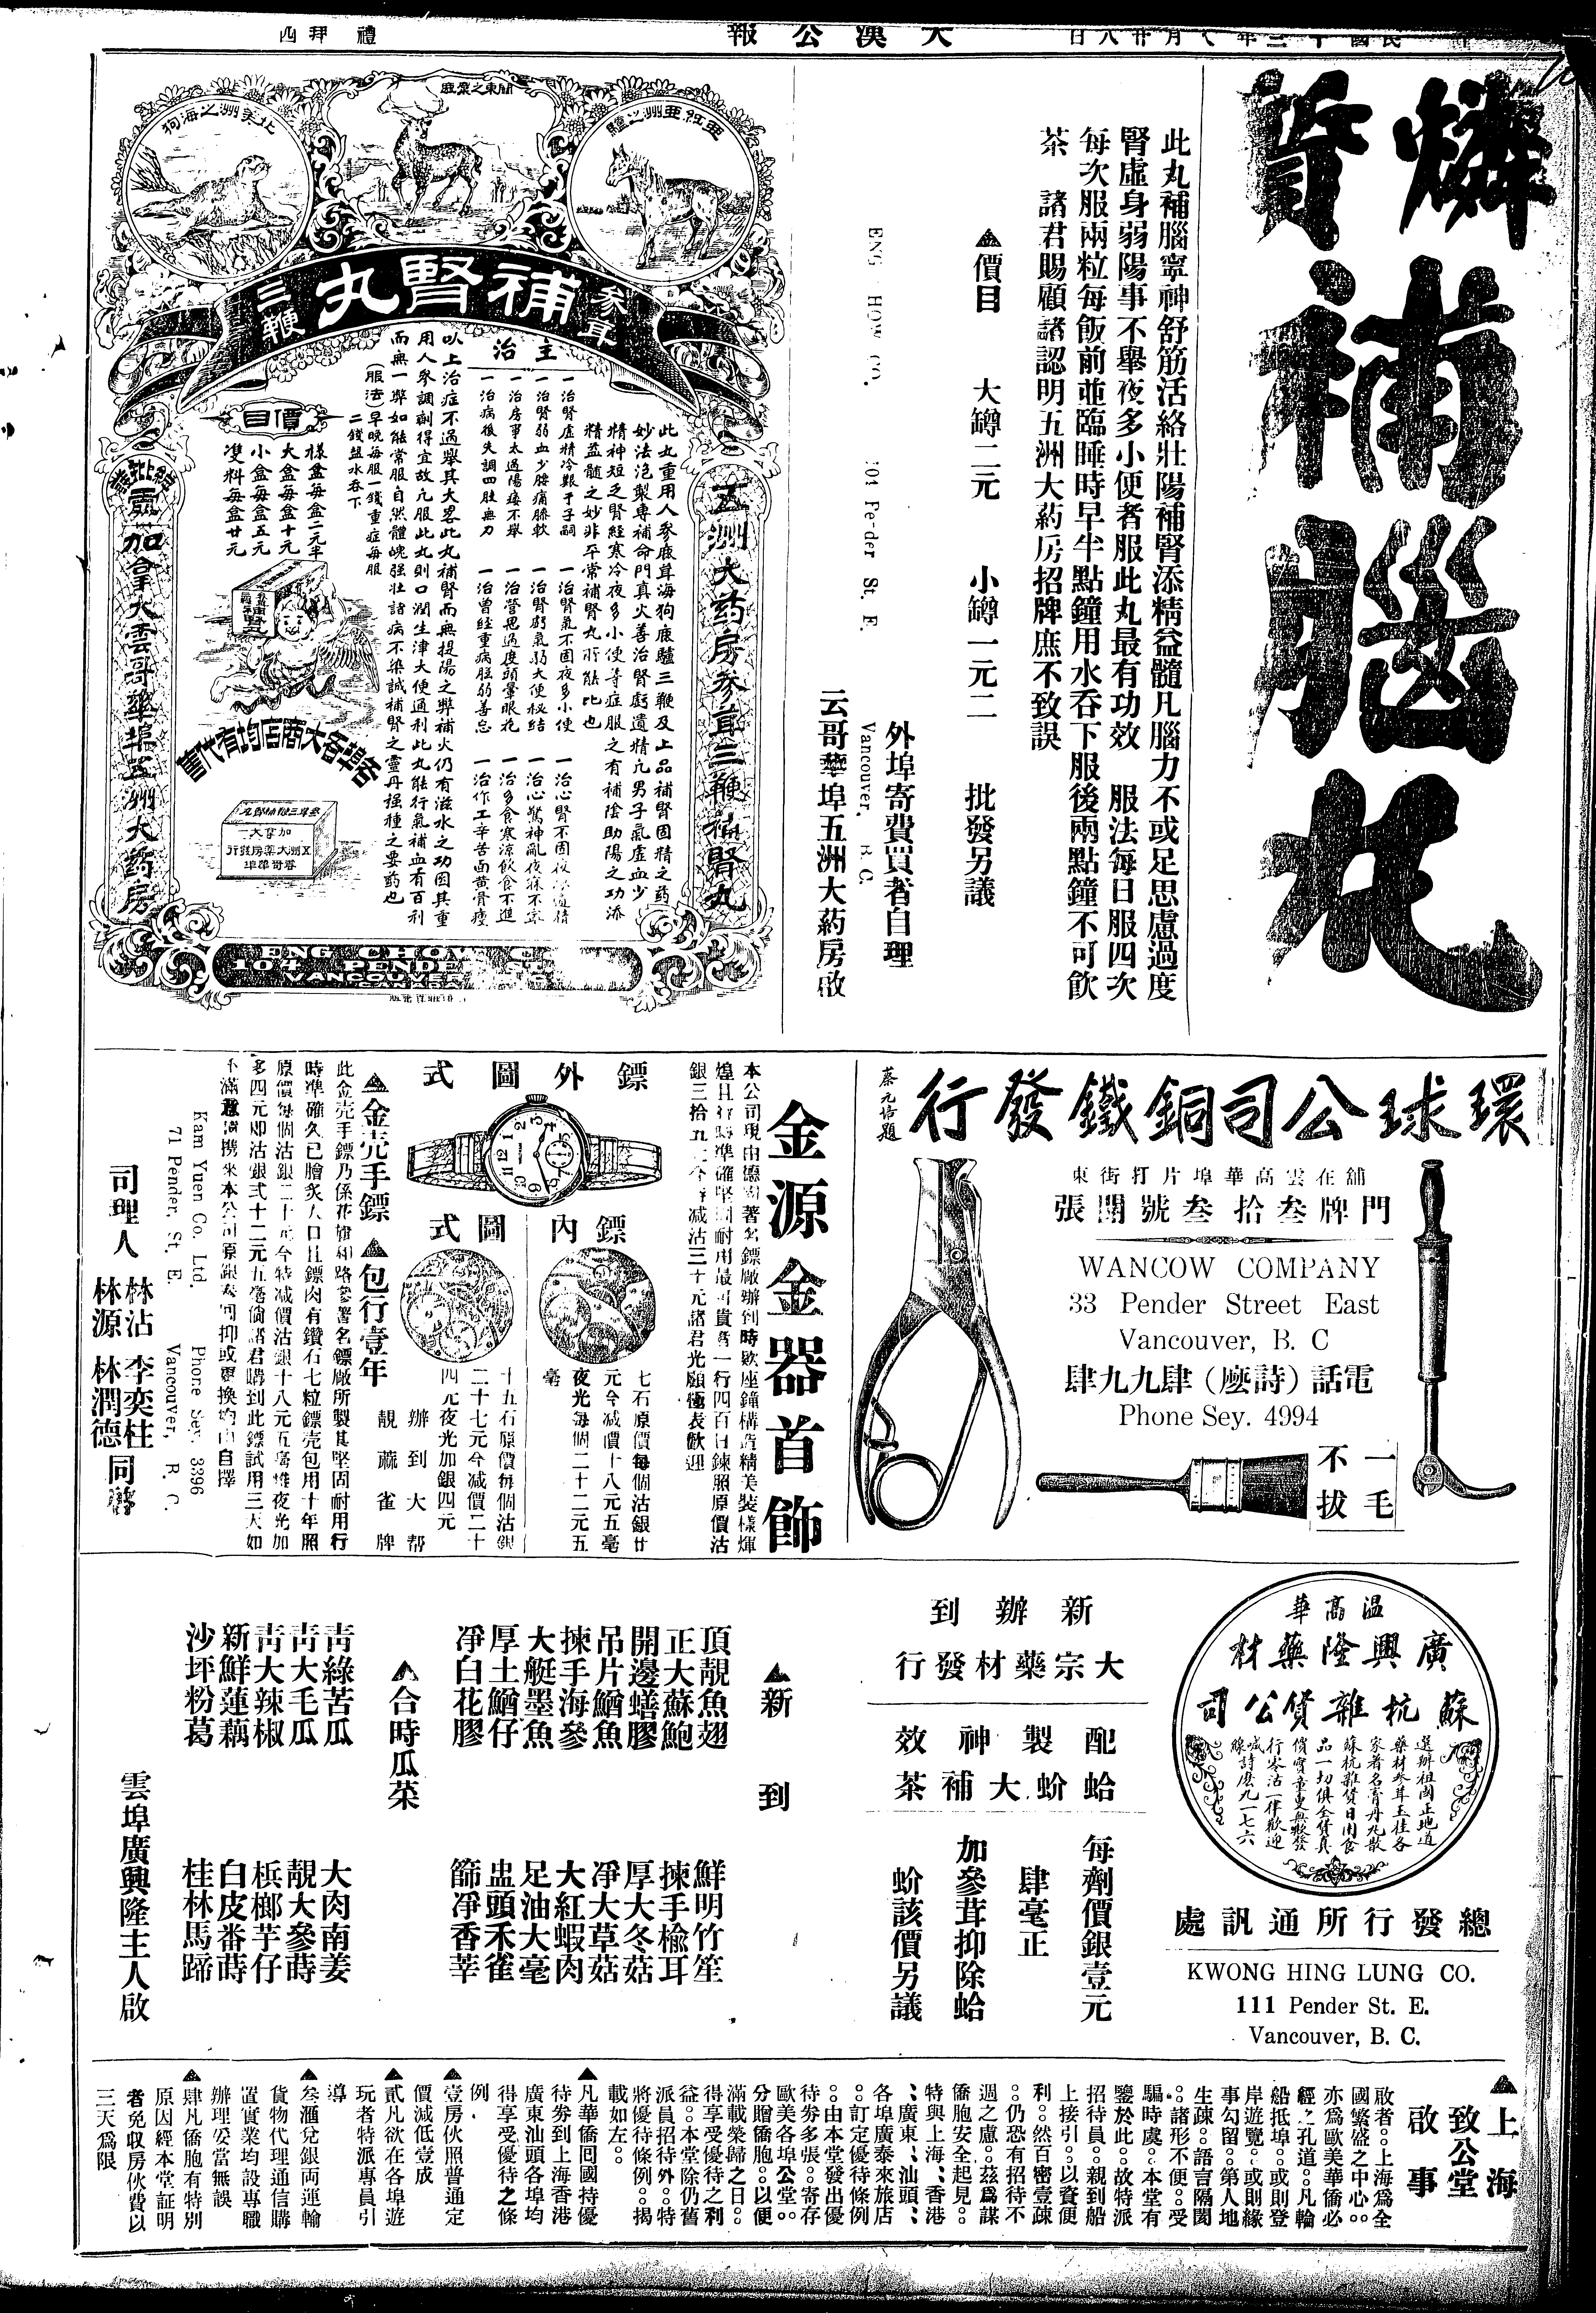 大漢公報
禮拜四
燐質補腦丸
此丸補腦寧神舒筋活絡壯陽補腎添精益髓凡腦力不或足思慮過度
腎虛身弱陽事不舉夜多小便者服此丸最有功效　服法每日服四次
每次服兩粒每飯前並臨睡時早半點鐘用水吞下服後兩點鐘不可飲
茶　諸君賜顧諸認明五洲大葯房招牌庶不致誤
▲價目　大罇二元　小罇一元二　批發另議
外埠寄費買者自理
云哥華埠五洲大葯房啟
Vancouver, B.C.
北美洲之海狗
關東之梁鹿
亜拉亜洲之驢
參茸
補腎丸
三鞭
主治
此丸重用人參鹿茸海狗鹿驢三鞭及上品補腎固精之葯
妙法泡製專補命門真火善治腎虧遺精凢男子氣虛血少
精神短乏腎經寒冷夜多小便等症服之有補陰助陽之功添
精益髓之妙非平常補腎丸所能比也
一治腎虛精冷艱于子嗣
一治腎弱血少腰痛膝軟
一治房事太過陽痿不舉
一治病後失調四肢無力
一治腎氣不固夜多小便
一治腎虧氣弱大便秘結
一治營思過度頭暈眼花
一治曾經重病胆弱善忘
一治心驚神亂夜寐不寧
一治多食寒涼飲食不進
一治作工辛苦面黃骨瘦
以上治症不過舉其大畧此丸補腎而無提陽之弊補火仍有滋水之功因其重
用人參調劑得宜故凢服此丸則口潤生津大便通利此丸能行氣補血有百利
而無一弊如能常服自然體魄强壯諸病不染誠補腎之靈丹种種之要葯也
(服法)早晚每服一錢重症每服
二錢盐水吞下
價目
樣盒每盒二元半
大盒每盒十元
小盒每盒五元
雙料每盒廿元
各埠各大商店均有代售
五洲大药房參茸三鞭補腎丸
加拿大雲哥華埠五洲大药房
ENG CHOW
104 PENDE
VANCOUVER
環球公司銅鐵發行
蔡元培題
舖在雲高華埠片打街東
門牌叁拾叁號開張
WANCOW COMPANY
33 Pender Street East
Vancouver, B. C
電話(詩麽)肆九九肆
Phone Sey. 4994
一毛
不拔
金源金器首飾
鏢外圖式
鏢內圖式
七石原價每個沽銀廿
元今减價十八元五毫
夜光每個二十二元五
毫
十五石原價每個沽銀
二十七元今减價二十
四元夜光加銀四元
辦到大帮
靚蔴雀牌
▲金壳手鏢　▲包行壹年
Kam Yuen Co. Ltd.
71 Pender, St. E.
Phone Sey. 3396
Vancouver, B. C.
司理人
林沾　李奕柱
林源　林潤德
溫高華
廣興隆藥材
蘇杭雜貨公司
選辦祖國正地道
藥材參茸玉桂各
家著名膏丹丸散
蘇杭雜貨日用食
品一切俱全貨真
價實童叟無欺發
行零沽一律歡迎
喊詩麽九一七六
線
總發行所通訊處
KWONG HING LUNG CO.
111 Pender St. E.
Vancouver, B. C.
新辦到
大宗藥材發行
配製神效
蛤蚧大補茶
每劑價銀壹元
肆毫正
加參茸抑除蛤
蚧該價另議
▲新到
頂靚魚翅　鮮明竹笙
正大蘇鮑　揀手榆耳
開邊蟮膠　厚大冬菇
吊片鰌魚　凈大草菇
揀手海參　大紅蝦肉
大艇墨魚　足油大毫
厚土鰌仔　盅頭禾雀
凈白花膠　篩凈香莘
▲合時瓜菜
靑綠苦瓜　大肉南姜
靑大毛瓜　靚大參蒔
靑大辣椒　梹榔芋仔
新鮮蓮藕　白皮番蒔
沙坪粉葛　桂林馬蹄
雲埠廣興隆主人啟
▲上海致公堂啟事
敢者。。上海爲全
國繁盛之中心。。
亦爲歐美華僑必
經之孔道。。凡輪
船抵埠。。或則登
岸遊覽。。或則緣
事勾留。。第人地
生疎。。語言隔閡
。。諸形不便。。受
騙時虞。。本堂有
鑒於此。。故特派
招待員。。親到船
上接引。。以資便
利。。然百密壹疎
。。仍恐有招待不
週之慮。。茲爲謀
僑胞安全起見。。
特與上海、香港
、廣東、汕頭、
各埠廣泰來旅店
。。訂定優待條例
。。由本堂發出優
待券多張。。寄存
歐美各埠公堂。。
分贈僑胞。。以便
滿載榮歸之日。。
得享受優待之利
益。。本堂除仍舊
派員招待外。。特
將優待條例。。揭
載如左。。
▲凡華僑囘國持優
待券到上海香港
廣東汕頭各埠均
得享受優待之條
例
▲壹房伙照普通定
價減低壹成
▲貳凡欲在各埠遊
玩者特派專員引
導
▲叁滙兌銀両運輪
貨物代理通信購
置實業均設專職
辦理妥當無誤
▲肆凡僑胞有特別
原因經本堂証明
者免収房伙費以
三天爲限